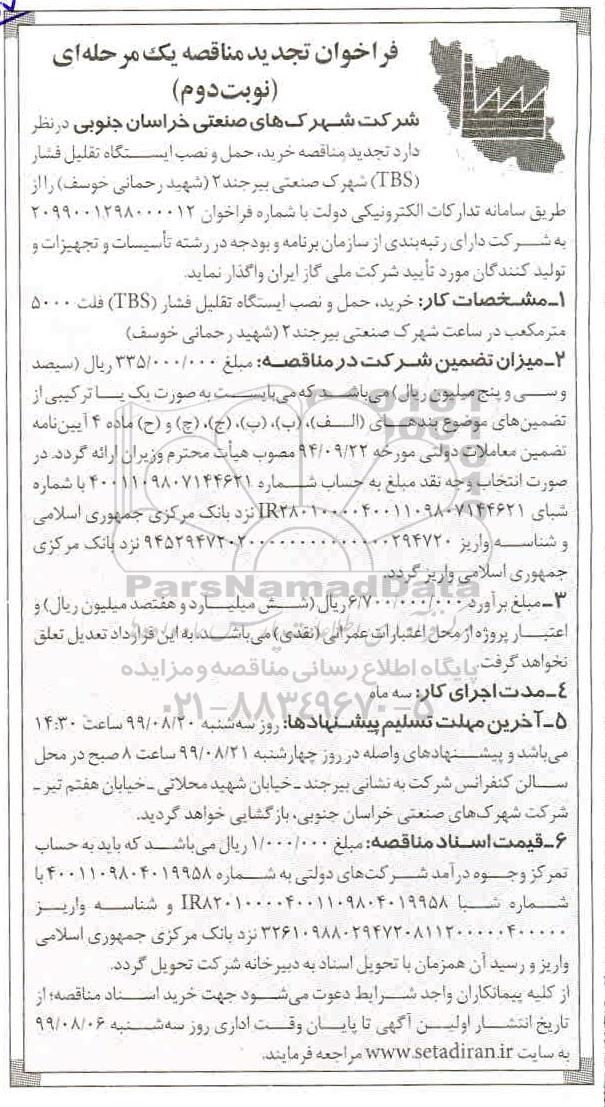 فراخوان تجدید مناقصه یک مرحله‌ای
(نوبت دوم)
شرکت شهرک‌های صنعتی خراسان جنوبی در نظر
دارد تجدید مناقصه خرید، حمل و نصب ایستگاه تقلیل فشار
(TBS) شهرک صنعتی بیرجند۲ (شهید رحمانی خوسف) را از
طریق سامانه تدارکات الکترونیکی دولت با شماره فراخوان ۲۰۹۹۰۰۱۲۹۸۰۰۰۰۱۲
به شرکت دارای رتبه‌بندی از سازمان برنامه و بودجه در رشته تأسیسات و تجهیزات و
تولید کنندگان مورد تأیید شرکت ملی گاز ایران واگذار نماید.
۱ـ مشخصات کار: خرید، حمل و نصب ایستگاه تقلیل فشار (TBS) فلت ۵۰۰۰
مترمکعب در ساعت شهرک صنعتی بیرجند۲ (شهید رحمانی خوسف)
۲ـ میزان تضمین شرکت در مناقصه: مبلغ ۳۳۵/۰۰۰/۰۰۰ ریال (سیصد
و سی و پنج میلیون ریال) می‌باشد که می‌بایست به صورت یک یا ترکیبی از
تضمین‌های موضوع بندهای (الف)، (ب)، (پ)، (ج)، (چ) و (ح) ماده ۴ آیین‌نامه
تضمین معاملات دولتی مورخه ۹۴/۰۹/۲۲ مصوب هیأت محترم وزیران ارائه گردد. در
صورت انتخاب وجه نقد مبلغ به حساب شماره ۴۰۰۱۱۰۹۸۰۷۱۴۴۶۲۱ با شماره
شبای IR۲۸۰۱۰۰۰۰۴۰۰۱۱۰۹۸۰۷۱۴۴۶۲۱ نزد بانک مرکزی جمهوری اسلامی
و شناسه واریز نزد بانک مرکزی
جمهوری اسلامی واریز گردد.
۳ـ مبلغ برآورد ۶/۷۰۰/۰۰۰/۰۰۰ ریال (شش میلیارد و هفتصد میلیون ریال) و
اعتبار پروژه از محل اعتبارات عمرانی (نقدی) می‌باشد. به این قرارداد تعدیل تعلق
نخواهد گرفت.
۴ـ مدت اجرای کار: سه ماه
۵ـ آخرین مهلت تسلیم پیشنهادها: روز سه‌شنبه ۹۹/۰۸/۲۰ ساعت ۱۴:۳۰
می‌باشد و پیشنهادهای واصله در روز چهارشنبه ۹۹/۰۸/۲۱ ساعت ۸ صبح در محل
سالن کنفرانس شرکت به نشانی بیرجند ـ خیابان شهید محلاتی ـ خیابان هفتم تیر ـ
شرکت شهرک‌های صنعتی خراسان جنوبی، بازگشایی خواهد گردید.
۶ـ قیمت اسناد مناقصه: مبلغ ۱/۰۰۰/۰۰۰ ریال می‌باشد که باید به حساب
تمرکز وجوه درآمد شرکت‌های دولتی به شماره ۴۰۰۱۱۰۹۸۰۴۰۱۹۹۵۸ با
شماره شبا IR۸۲۰۱۰۰۰۰۴۰۰۱۱۰۹۸۰۴۰۱۹۹۵۸ و شناسه واریز
۳۲۶۱۰۹۸۸۰۲۹۴۷۲۰۸۱۱۲۰۰۰۰۰۴۰۰۰۰۰ نزد بانک مرکزی جمهوری اسلامی
واریز و رسید آن همزمان با تحویل اسناد به دبیرخانه شرکت تحویل گردد.
از کلیه پیمانکاران واجد شرایط دعوت می‌شود جهت خرید اسناد مناقصه؛ از
تاریخ انتشار اولین آگهی تا پایان وقت اداری روز سه‌شنبه ۹۹/۰۸/۰۶
به سایت www.setadiran.ir مراجعه فرمایند.
ParsNamadData
پایگاه اطلاع رسانی مناقصه و مزایده
۰۲۱-۸۸۳۴۹۶۷۰-۵